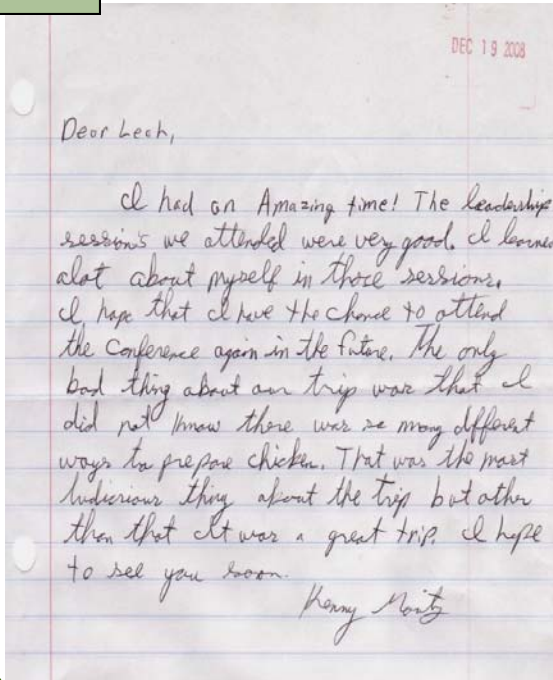 DEC 19 2008
Dear Leah,
I had an Amazing time! The leadership
session's we attended were very good. I learned
alot about myself in those sessions.
I hope that I have the chance to attend
the Conference again in the future. The only
bad thing about our trip was that I
did not know there was so many different
ways to prepare chicken. That was the most
ludicrious thing about the trip but other
than that It was a great trip. I hope
to see you soon.
Kenny